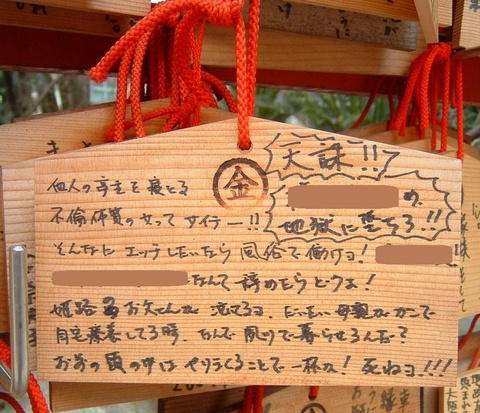 天誅!!
め、
地獄に堕ちろ!!
金
他人の亭主を寝とる
不倫体質の女ってサイテー!!
そんなにエッチしたいなら風俗で働けヨ!
なんて辞めたらどうよ!
姫路のお父さんが泣てるヨ、だいたい母親がガンで
自宅療養してる時、なんで で暮らせるんだ?
お前の頭の中はヤリまくることで一杯か!死ねヨ!!!